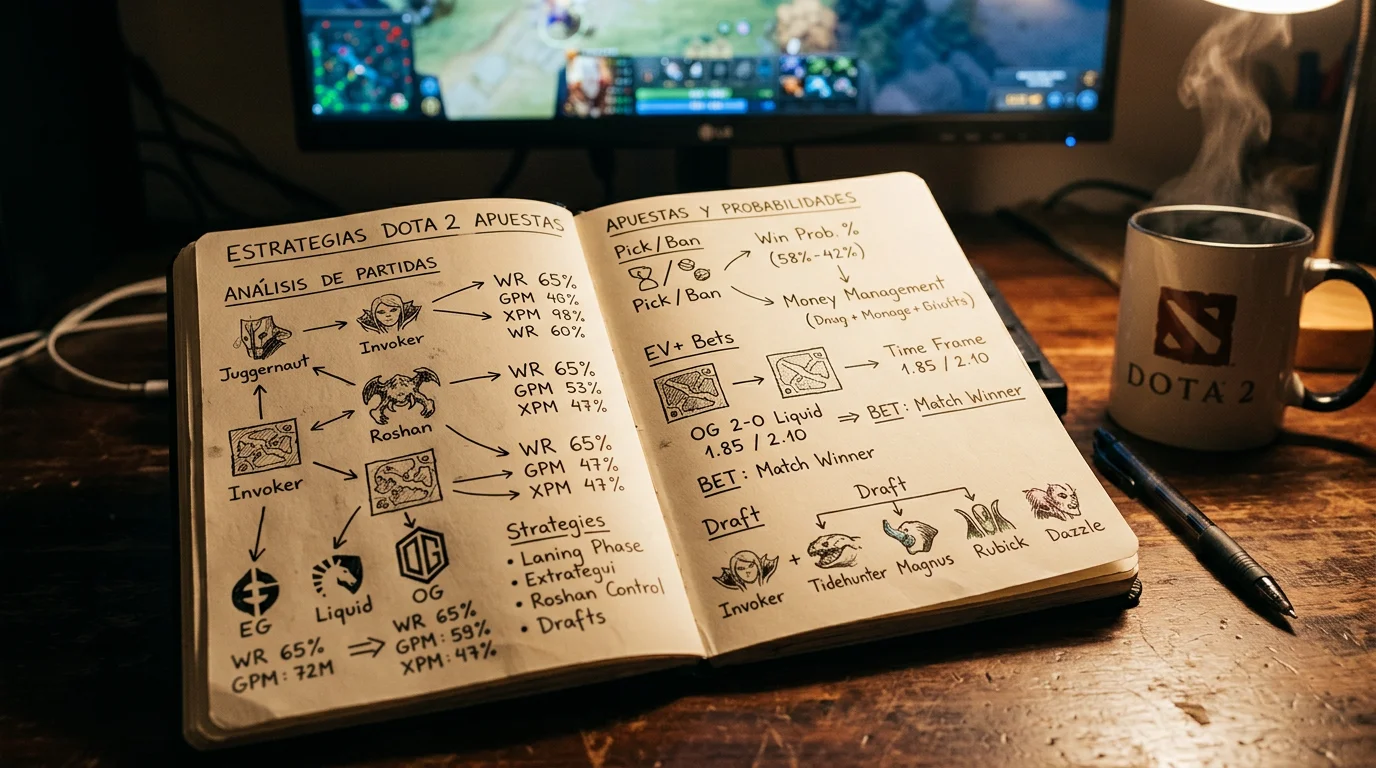 ESTRATEGIAS DOTA 2 APUESTAS
ANÁLISIS DE PARTIDAS
Juggernaut
Invoker
WR 65%
GPM 46%
XPM 98%
WR 60%
Roshan
WR 65%
GPM 53%
XPM 47%
Invoker
WR 65%
GPM 47%
XPM 47%
EG
Liquid
OG
OG
WR 65%
GPM: 72M
WR 65%
GPM: 59%
XPM: 47%
Strategies
• Laning Phase
• Extrategui
• Roshan Control
• Drafts
APUESTAS Y PROBABILIDADES
Pick/Ban
Pick/Ban
Win Prob. %
(58%-42%)
Money Management
EV+ Bets
Time Frame
1.85 / 2.10
OG 2-0 Liquid ⇒ BET: Match Winner
1.85 / 2.10
BET: Match Winner
Draft
Draft
Invoker + Tidehunter Magnus Rubick Dazzle
LG
DOTA 2